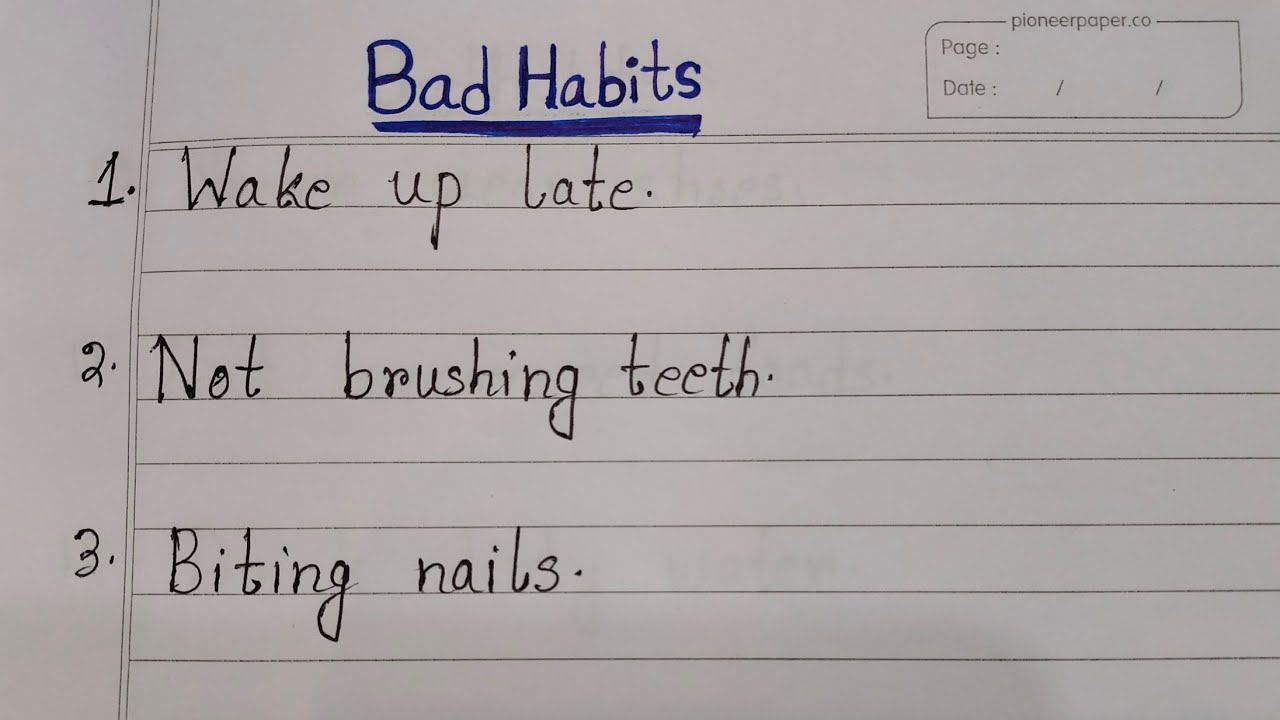 pioneerpaper.co
Page :
Date : / /
Bad Habits
1. Wake up late.
2. Not brushing teeth.
3. Biting nails.